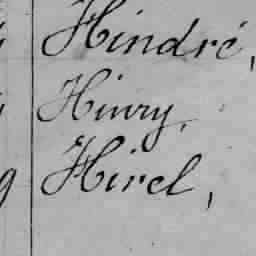 Hindré,
Hinry,
Hirel,